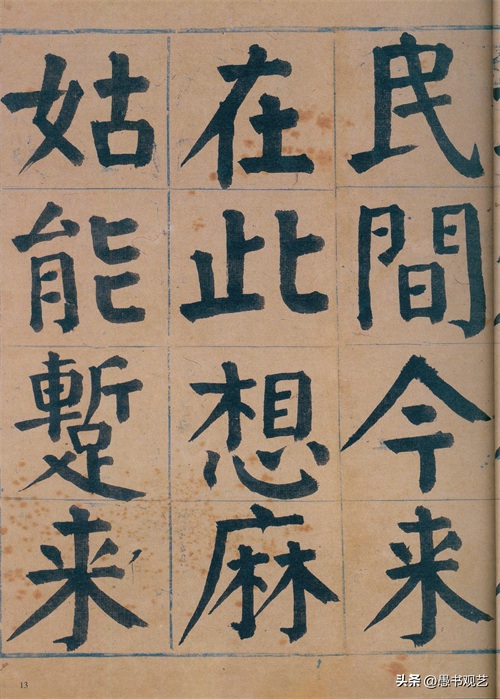 民間今来
在此想麻
姑能蹔来
13
头条 @愚书观艺